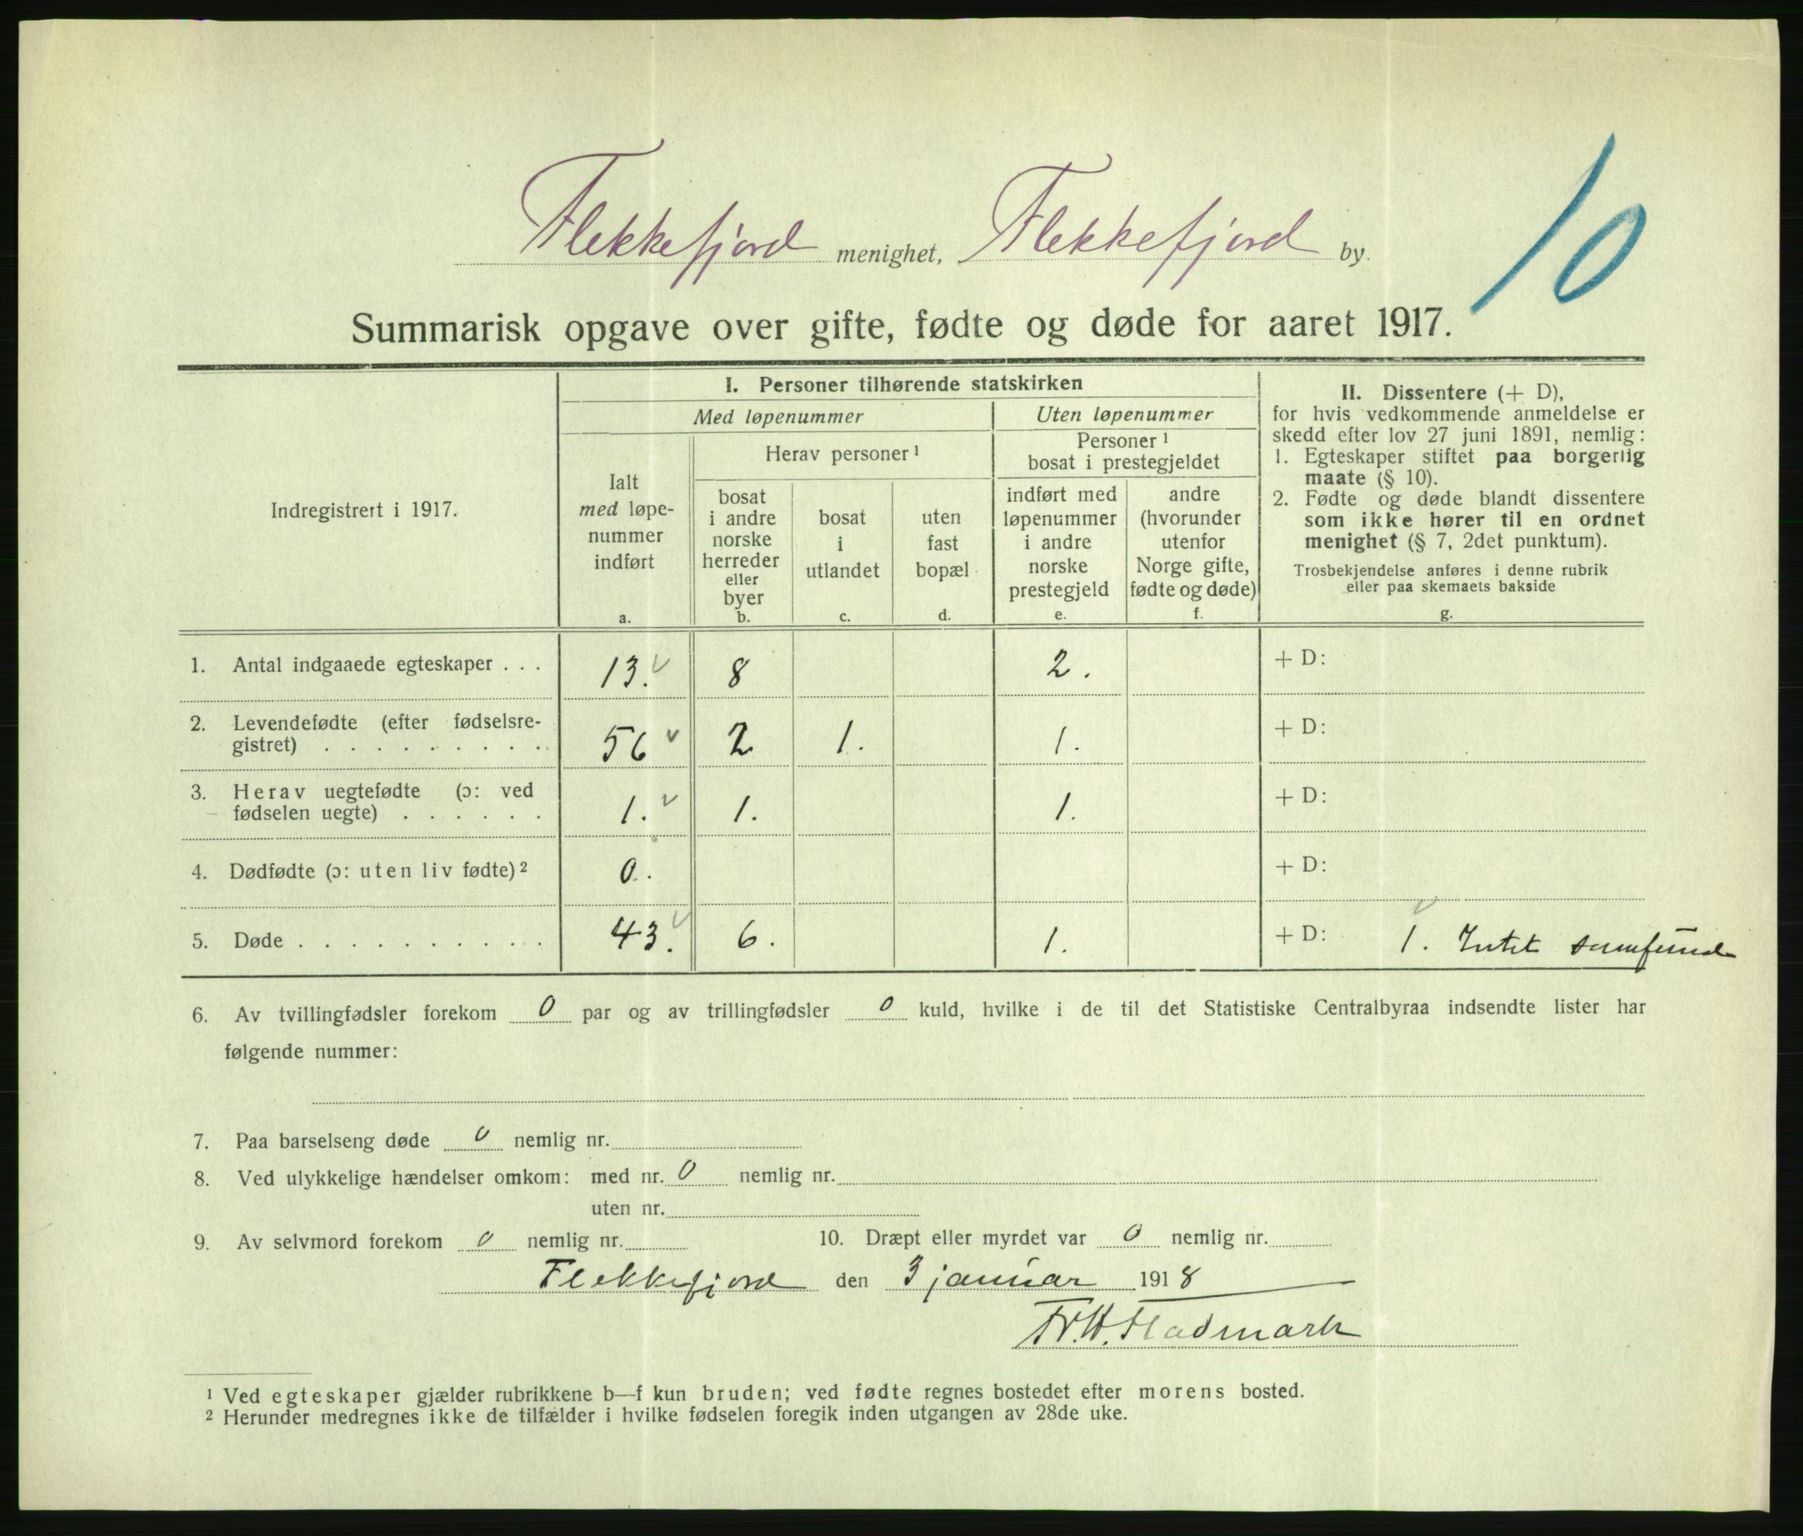 10
Flekkefjord menighet, Flekkefjord by.
Summarisk opgave over gifte, fødte og døde for aaret 1917.
Indregistrert i 1917.
I. Personer tilhørende statskirken
Med løpenummer
Uten løpenummer
Ialt
med løpe-
nummer
indført
a.
Herav personer ¹
bosat
i andre
norske
herreder
eller
byer
b.
bosat
i
utlandet
c.
uten
fast
bopæl
d.
Personer ¹
bosat i prestegjeldet
indført med
løpenummer
i andre
norske
prestegjeld
e.
andre
(hvorunder
utenfor
Norge gifte,
fødte og døde)
f.
II. Dissentere (+ D),
for hvis vedkommende anmeldelse er
skedd efter lov 27 juni 1891, nemlig:
1. Egteskaper stiftet paa borgerlig
maate (§ 10).
2. Fødte og døde blandt dissentere
som ikke hører til en ordnet
menighet (§ 7, 2det punktum).
Trosbekjendelse anføres i denne rubrik
eller paa skemaets bakside
g.
1. Antal indgaaede egteskaper . . . 13. 8 2. + D:
2. Levendefødte (efter fødselsre-
gistret) . . . . . . . . . 56 2 1. 1. + D:
3. Herav uegtefødte (ɔ: ved
fødselen uegte) . . . . . . 1. 1. 1. + D:
4. Dødfødte (ɔ: uten liv fødte) ² 0. + D:
5. Døde . . . . . . . . . . 43. 6. 1. + D: 1. Intet samfund
6. Av tvillingfødsler forekom 0 par og av trillingfødsler 0 kuld, hvilke i de til det Statistiske Centralbyraa indsendte lister har
følgende nummer:
7. Paa barselseng døde 0 nemlig nr.
8. Ved ulykkelige hændelser omkom: med nr. 0 nemlig nr.
uten nr.
9. Av selvmord forekom 0 nemlig nr. 10. Dræpt eller myrdet var 0 nemlig nr.
Flekkefjord den 3 januar 1918
Fr. H. Flodmark
¹ Ved egteskaper gjælder rubrikkene b—f kun bruden; ved fødte regnes bostedet efter morens bosted.
² Herunder medregnes ikke de tilfælder i hvilke fødselen foregik inden utgangen av 28de uke.